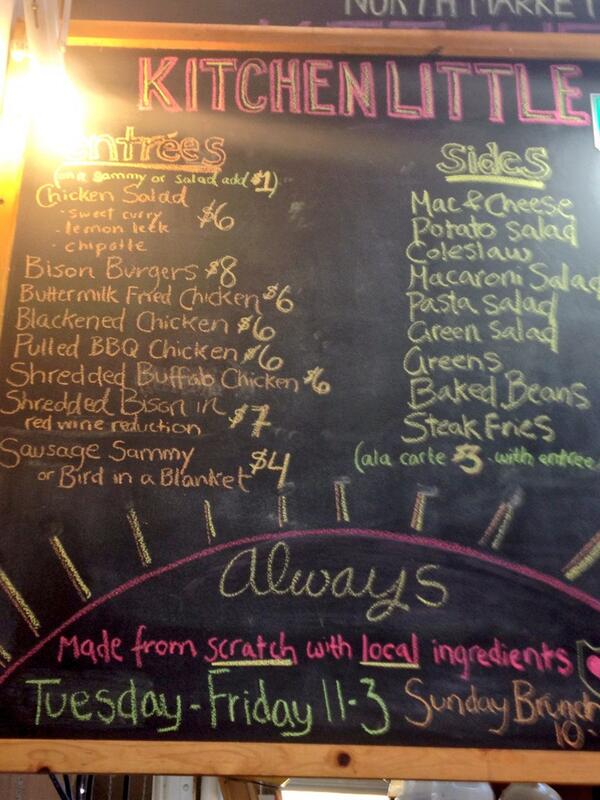 NORTH MARKET
KITCHEN LITTLE
entrées
(on a sammy or salad add $1)
Chicken Salad $6
· sweet curry
· lemon leek
· chipotle
Bison Burgers $8
Buttermilk Fried Chicken $6
Blackened Chicken $6
Pulled BBQ Chicken $6
Shredded Buffalo Chicken $6
Shredded Bison in
red wine reduction $7
Sausage Sammy
or Bird in a Blanket $4
Sides
Mac & Cheese
Potato Salad
Coleslaw
Macaroni Salad
Pasta Salad
Green Salad
Greens
Baked Beans
Steak Fries
(ala carte $3 · with entree
Always
Made from scratch with local ingredients
Tuesday - Friday 11-3 Sunday Brunch
10-